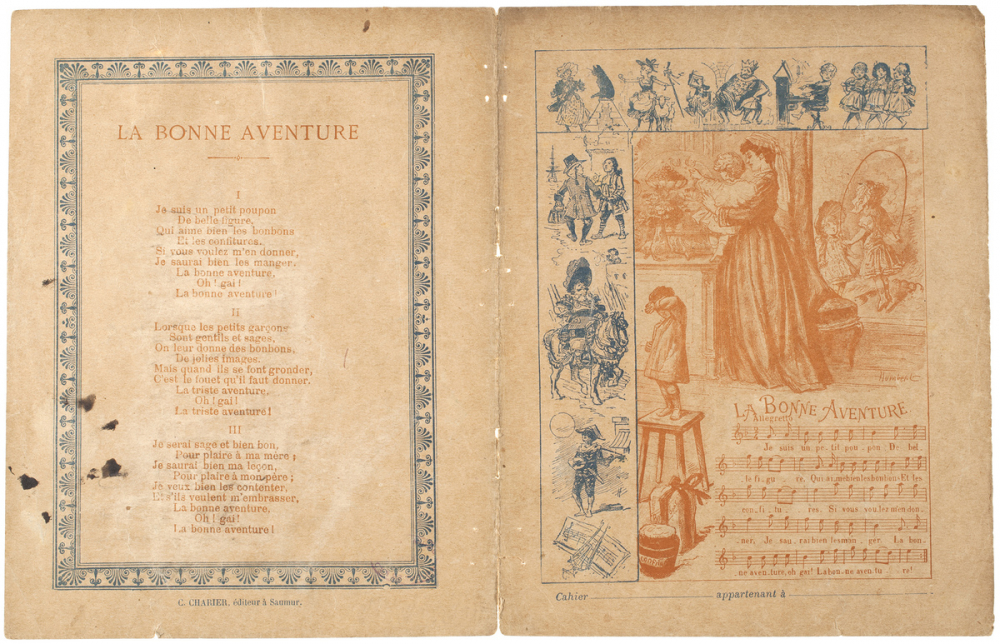 LA BONNE AVENTURE
I
Je suis un petit poupon
De belle figure,
Qui aime bien les bonbons
Et les confitures.
Si vous voulez m'en donner,
Je saurai bien les manger.
La bonne aventure,
Oh ! gai !
La bonne aventure !
II
Lorsque les petits garçons
Sont gentils et sages,
On leur donne des bonbons,
De jolies images.
Mais quand ils se font gronder,
C'est le fouet qu'il faut donner.
La triste aventure,
Oh ! gai !
La triste aventure !
III
Je serai sage et bien bon,
Pour plaire à ma mère ;
Je saurai bien ma leçon,
Pour plaire à mon père ;
Je veux bien les contenter,
Et s'ils veulent m'embrasser,
La bonne aventure,
Oh ! gai !
La bonne aventure !
C. CHARIER, éditeur à Saumur.
LA BONNE AVENTURE
Allegretto
Je suis un pe-tit pou-pon De bel-
le fi-gu-re, Qui ai-me bien les bonbons Et les
con-fi-tu-res. Si vous vou-lez m'en don-
ner, Je sau-rai bien les man-ger. La bon-
ne aven-ture, oh gai! La bon-ne aven-tu-re!
Cahier appartenant à